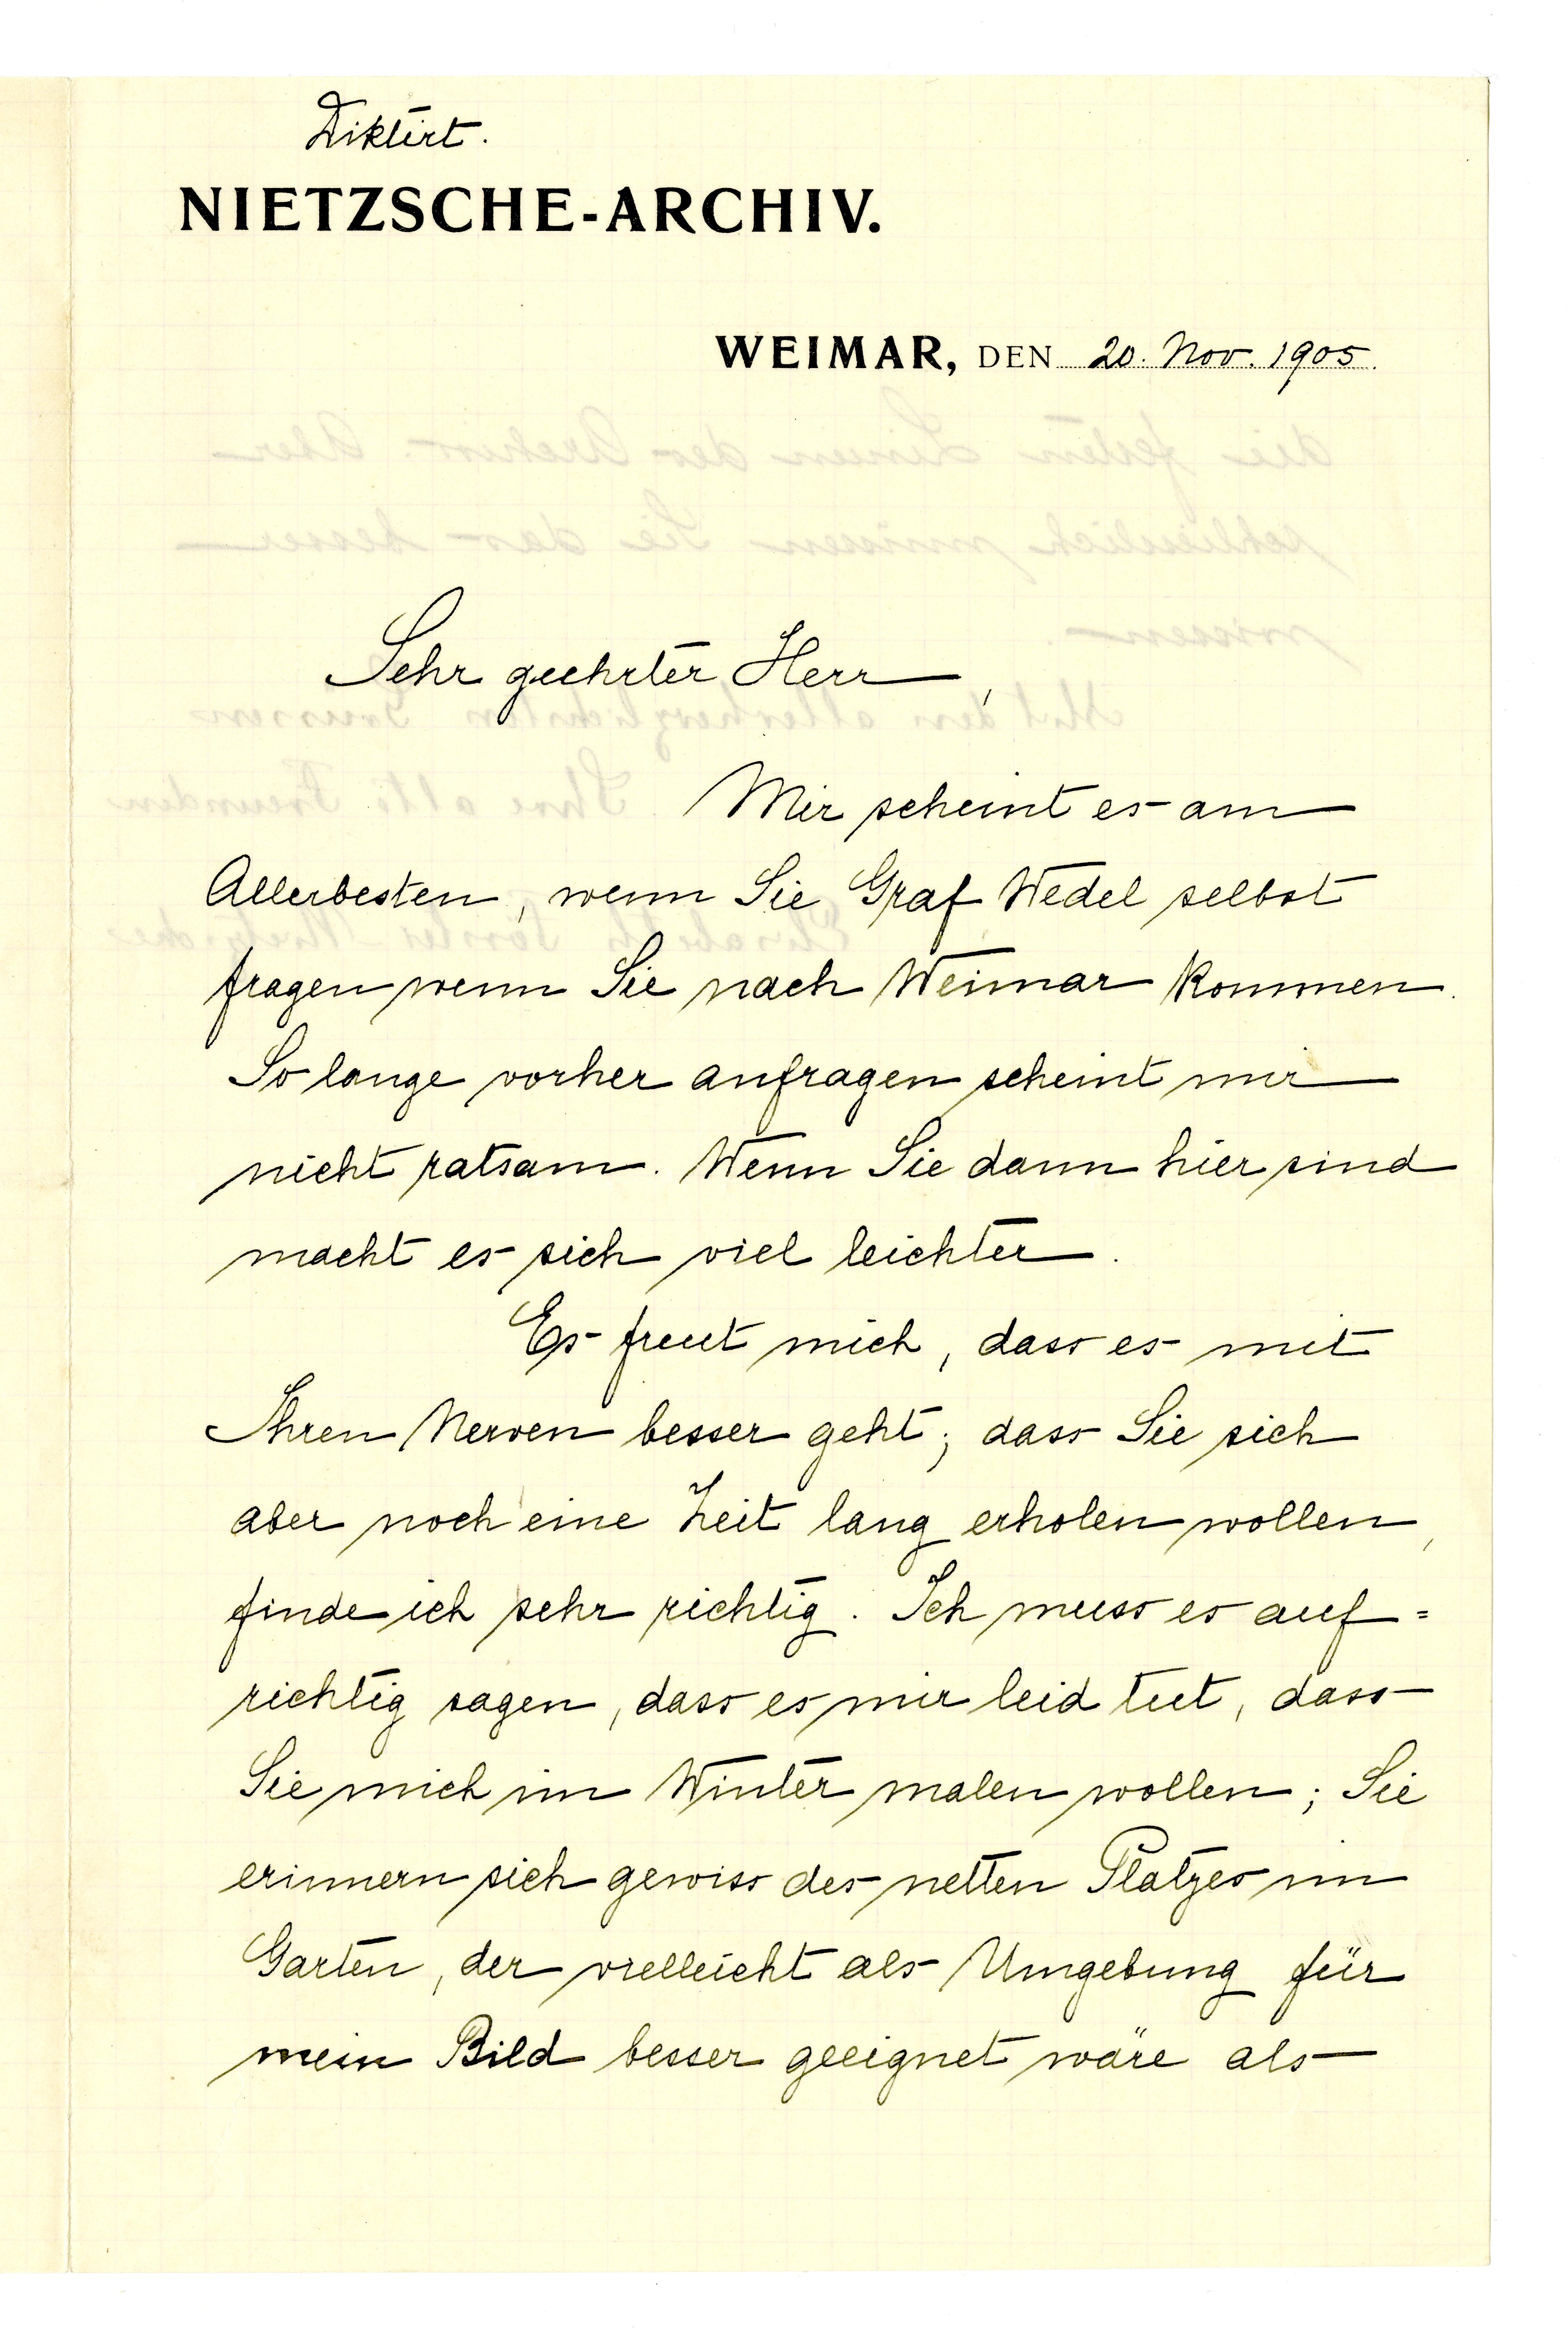 Diktirt.
NIETZSCHE-ARCHIV.
WEIMAR, DEN 20. Nov. 1905.
Sehr geehrter Herr,
Mir scheint es am
Allerbesten, wenn Sie Graf Wedel selbst
fragen wenn Sie nach Weimar kommen.
So lange vorher anfragen scheint mir
nicht ratsam. Wenn Sie dann hier sind
macht es sich viel leichter.
Es freut mich, dass es mit
Ihren Nerven besser geht; dass Sie sich
aber noch eine Zeit lang erholen wollen,
finde ich sehr richtig. Ich muss es auf=
richtig sagen, dass es mir leid tut, dass
Sie mich im Winter malen wollen; Sie
erinnern sich gewiss des netten Platzes im
Garten, der vielleicht als Umgebung für
mein Bild besser geeignet wäre als